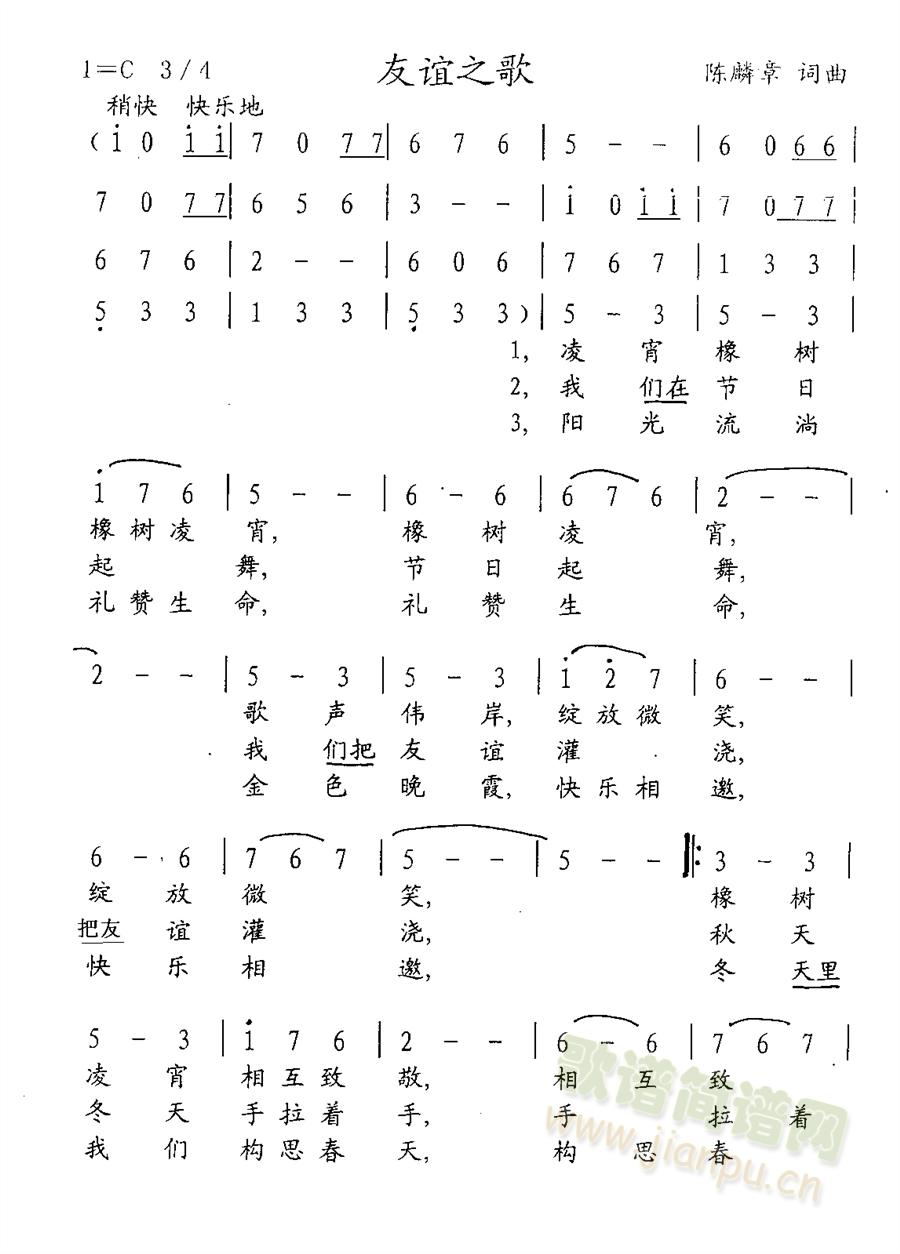 1=C 3/4 友谊之歌 陈麟章 词曲
稍快 快乐地
( i 0 i i | 7 0 7 7 | 6 7 6 | 5 - - | 6 0 6 6 |
7 0 7 7 | 6 5 6 | 3 - - | i 0 i i | 7 0 7 7 |
6 7 6 | 2 - - | 6 0 6 | 7 6 7 | 1 3 3 |
5 3 3 | 1 3 3 | 5 3 3 ) | 5 - 3 | 5 - 3 |
1, 凌 宵 橡 树
2, 我 们在 节 日
3, 阳 光 流 淌
i 7 6 | 5 - - | 6 - 6 | 6 7 6 | 2 - - |
橡 树 凌 宵, 橡 树 凌 宵,
起 舞, 节 日 起 舞,
礼 赞 生 命, 礼 赞 生 命,
2 - - | 5 - 3 | 5 - 3 | i 2 7 | 6 - - |
歌 声 伟 岸, 绽 放 微 笑,
我 们把 友 谊 灌 浇,
金 色 晚 霞, 快 乐 相 邀,
6 - 6 | 7 6 7 | 5 - - | 5 - - |: 3 - 3 |
绽 放 微 笑, 橡 树
把友 谊 灌 浇, 秋 天
快 乐 相 邀, 冬 天里
5 - 3 | i 7 6 | 2 - - | 6 - 6 | 7 6 7 |
凌 宵 相 互 致 敬, 相 互 致
冬 天 手 拉 着 手, 手 拉 着
我 们 构 思 春 天, 构 思 春
歌谱简谱网
www.jianpu.cn